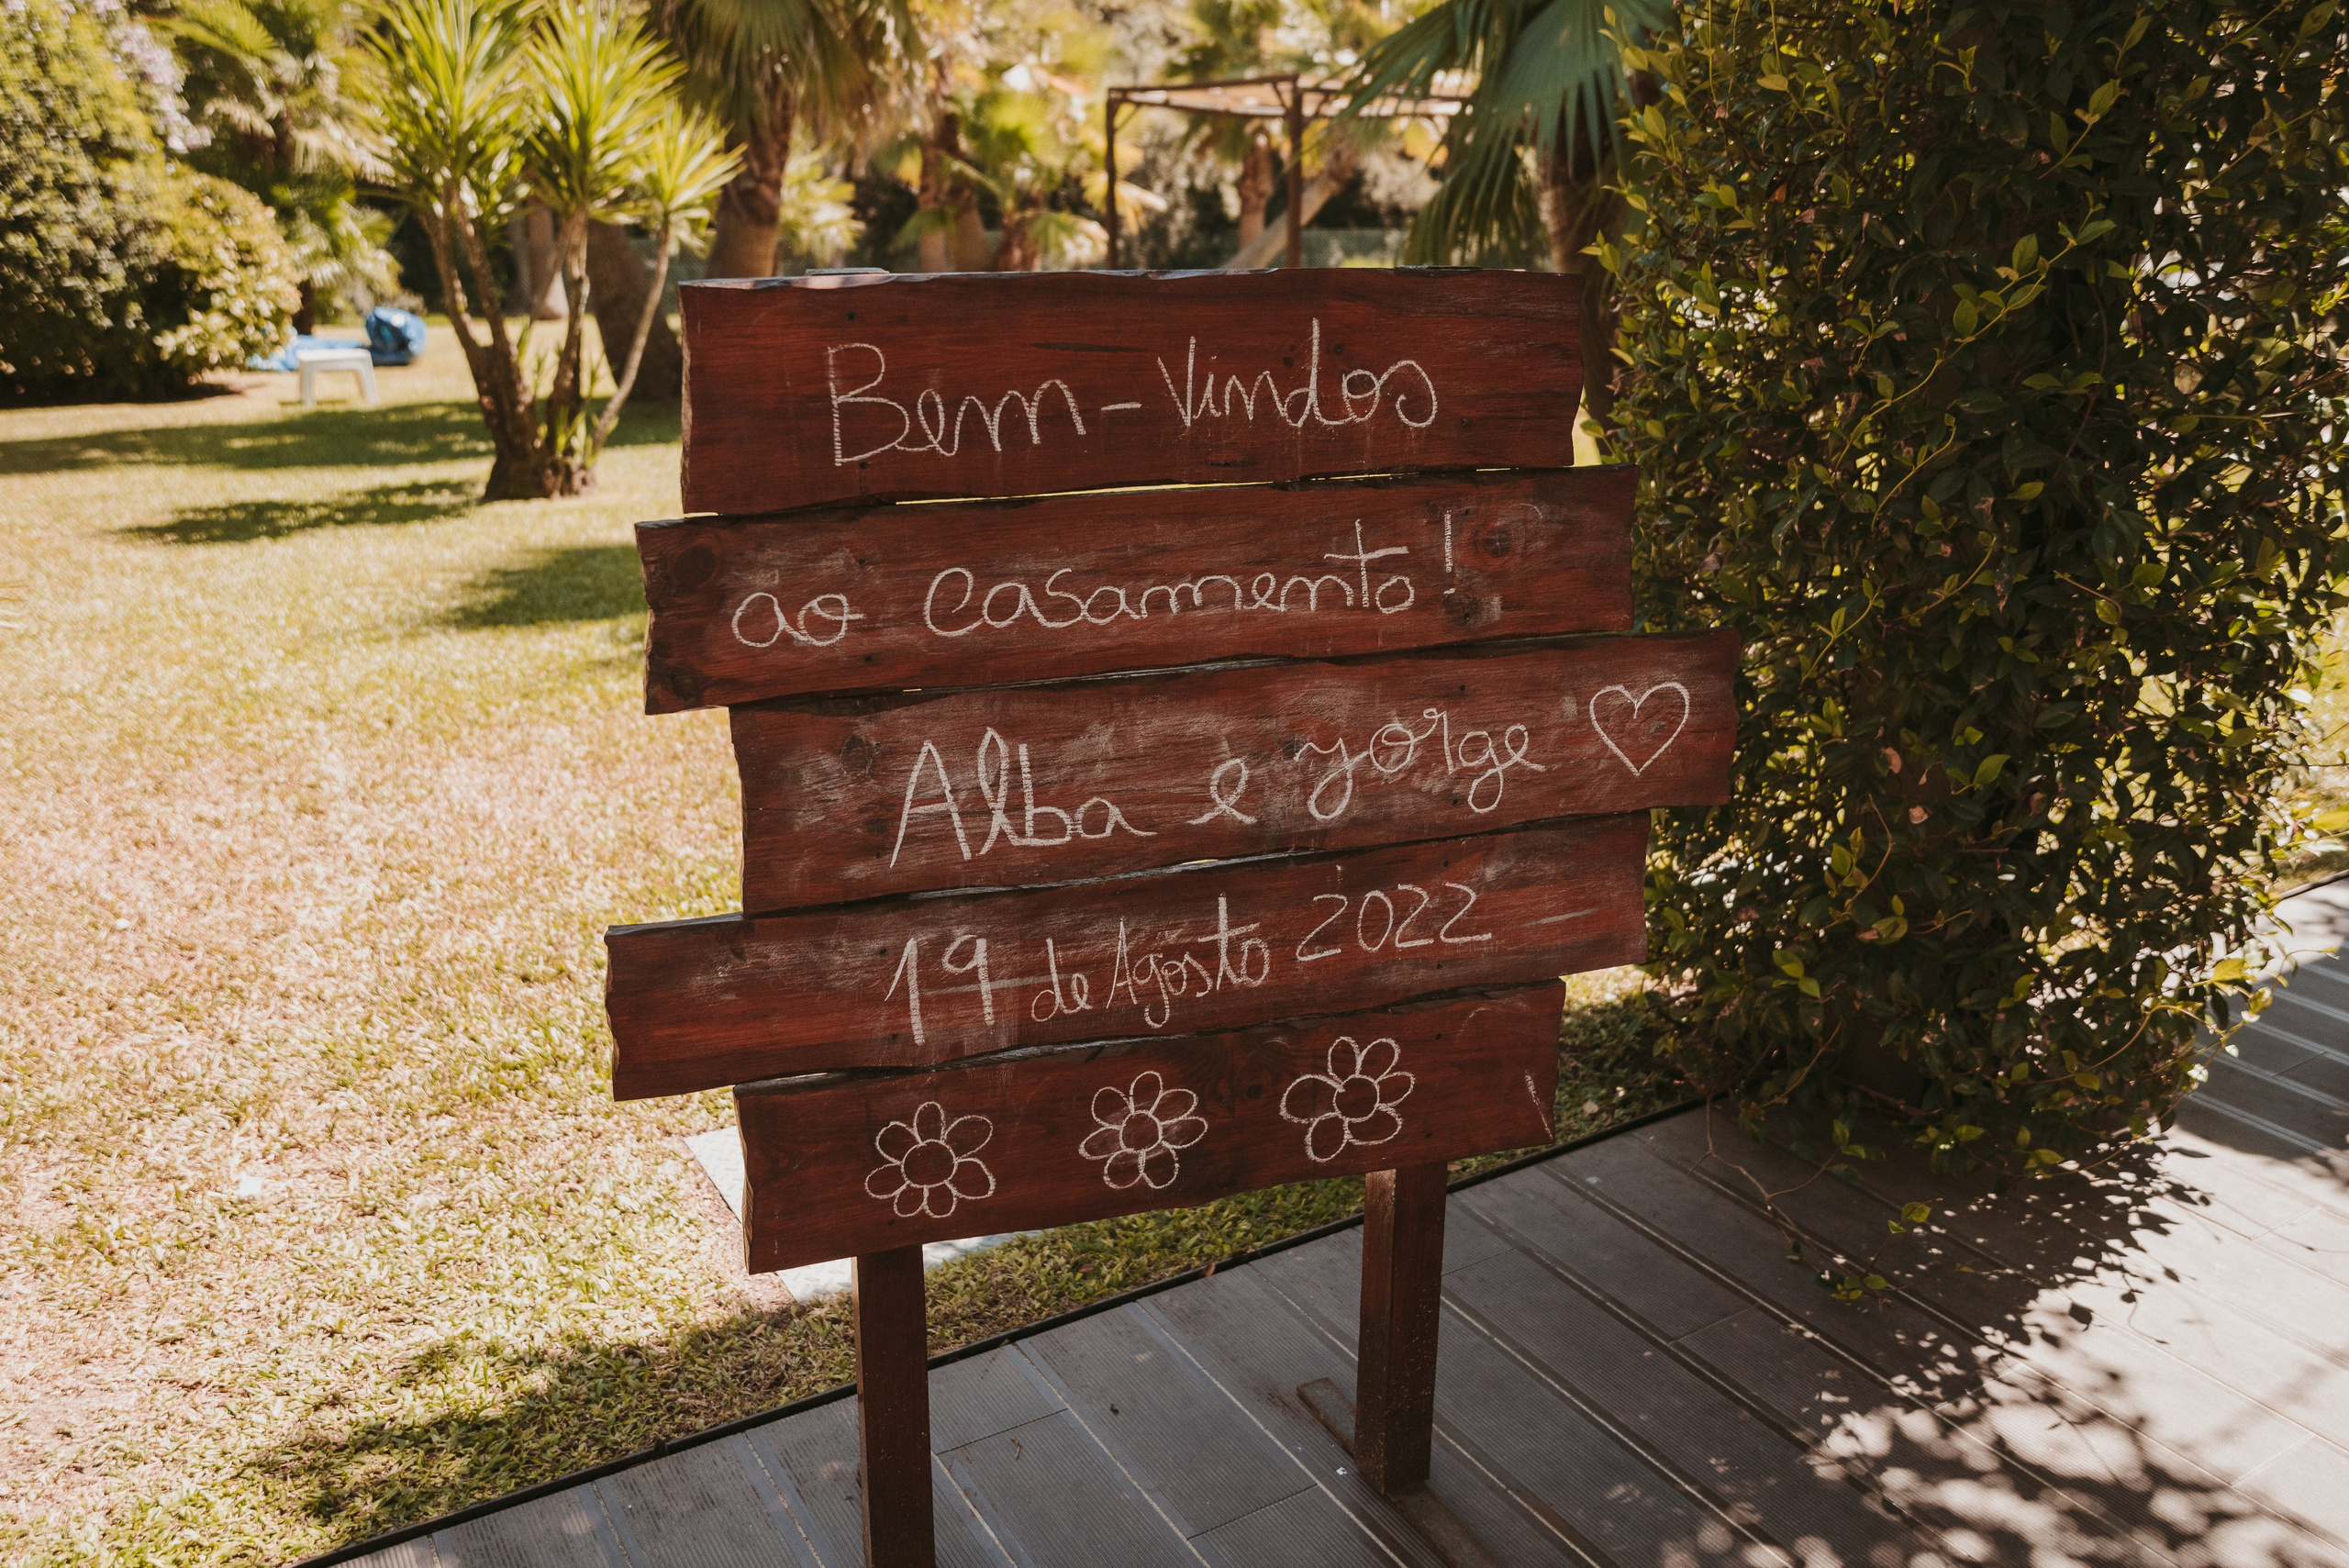 Bem-Vindos
ao casamento!
Alba e yorge
19 de Agosto 2022